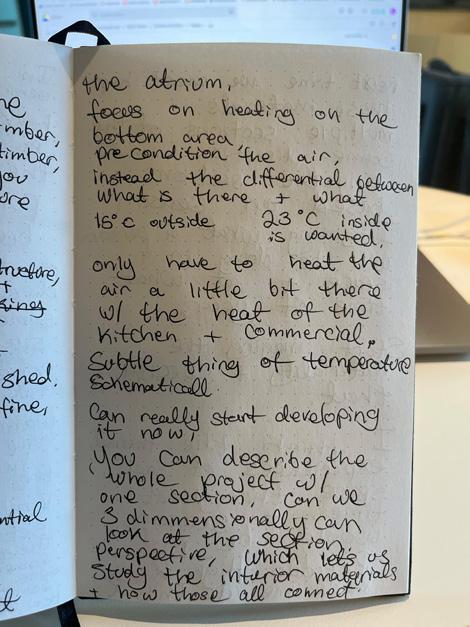 the atrium,
focus on heating on the
bottom area,
pre condition the air,
instead the differential between
what is there + what
15°C outside 23°C inside
is wanted.
only have to heat the
air a little bit there
w/ the heat of the
kitchen + commercial,
Subtle thing of temperature
Schematicall
Can really start developing
it now,
You can describe the
whole project w/
one section, can we
3 dimmensionally can
look at the section
perspective, which lets us
Study the interior materials
+ how those all connect.
timber,
you
+
shed.
fine,